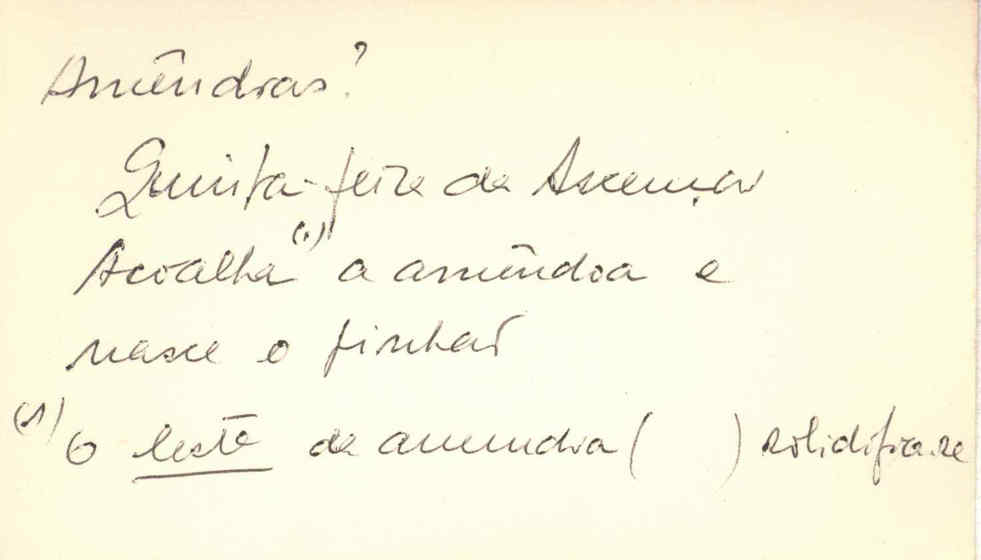 Amêndras?
Quinta-feira da Ascenção
Acoalha (1) a amêndoa e
nasce o pinhão
(1) O leste da amendoa ( ) solidifica-se